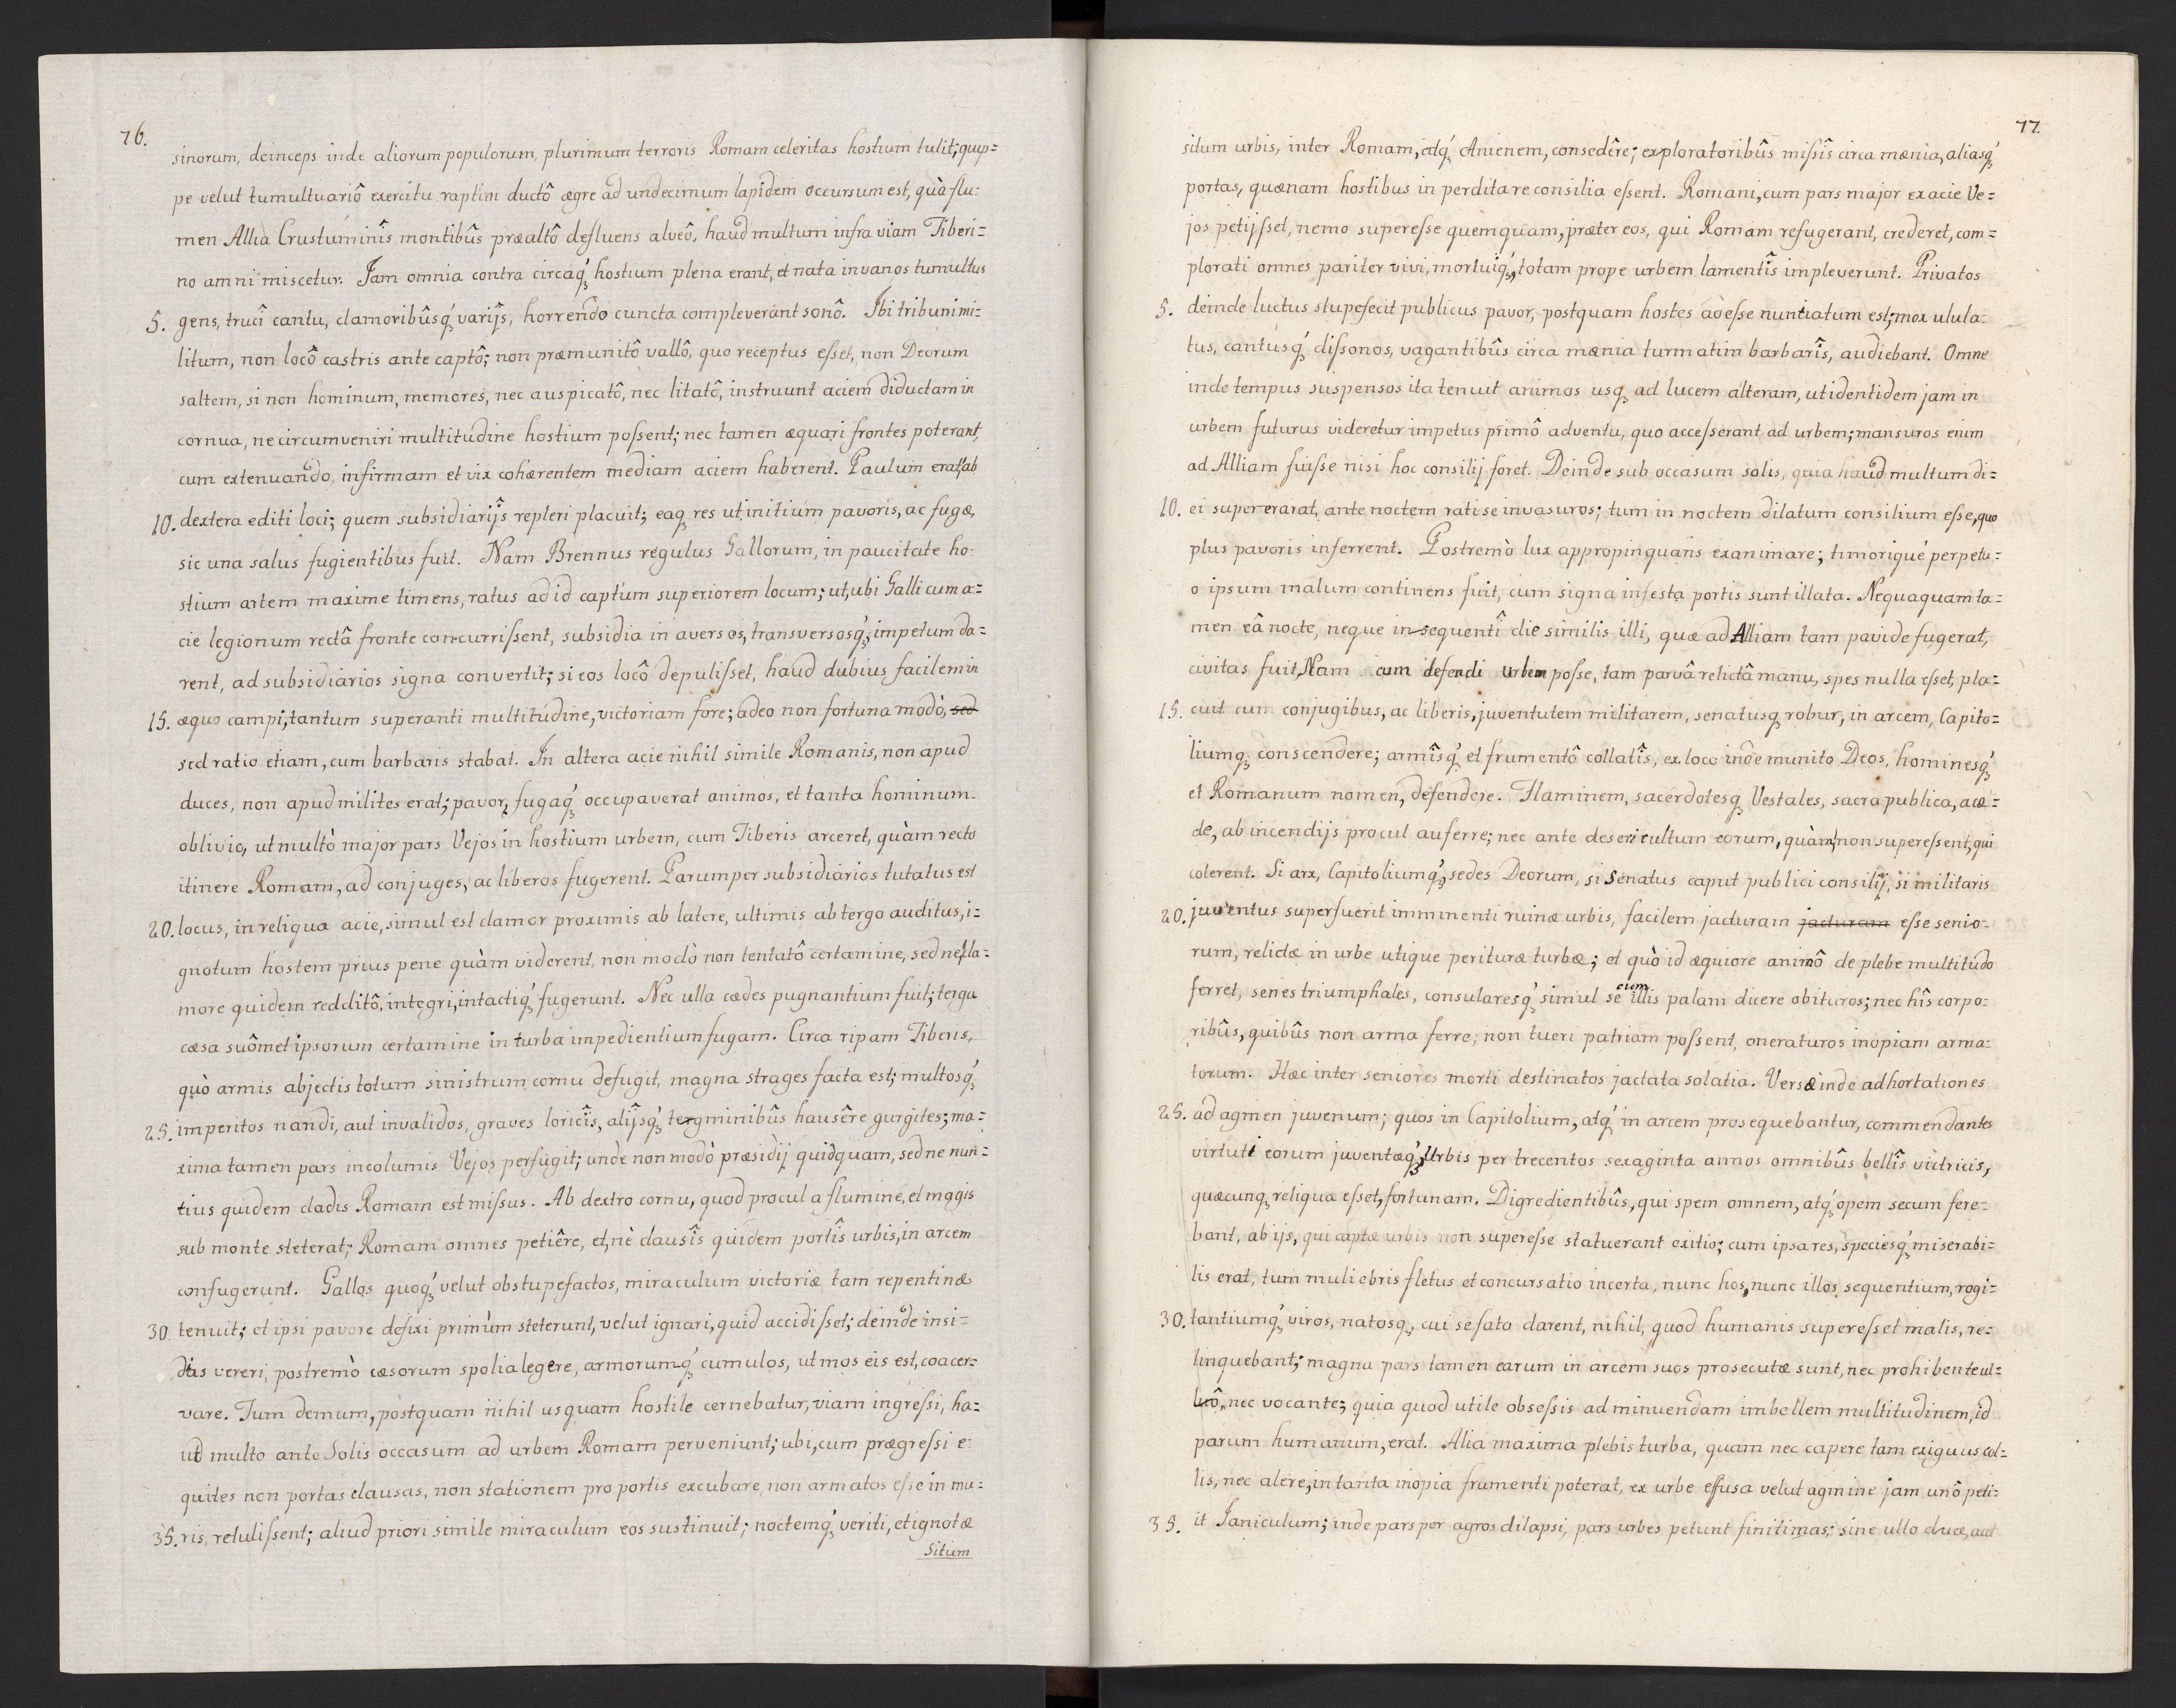 76.
sinorum, deinceps inde aliorum populorum, plurimum terroris Romam celeritas hostium tulit; quip=
pe velut tumultuariô exercitu raptim ductô ægre ad undecimum lapidem occursum est, quà flu=
men Allia Crustuminîs montibûs præaltô defluens alveô, haud multum infra viam Tiberi=
no amni miscetur. Jam omnia contra circaq́ꝫ hostium plena erant, et nata in vanos tumultus
5. gens, truci cantu, clamoribûsq́ꝫ varijs, horrendo cuncta compleverant sonô. Ibi tribuni mi=
litum, non locô castris ante captô; non præmunitô vallô, quo receptus eſset, non Deorum
saltem, si non hominum, memores, nec auspicatô, nec litatô, instruunt aciem diductam in
cornua, ne circumveniri multitudine hostium poſsent; nec tamen æquari frontes poterant,
cum extenuando, infirmam et vix cohærentem mediam aciem haberent. Paulum erat ab
10. dextera editi loci; quem subsidiarijs repleri placuit; eaqꝫ res ut initium pavoris, ac fugæ,
sic una salus fugientibus fuit. Nam Brennus regulus Gallorum, in paucitate ho=
stium artem maxime timens, ratus ad id captum superiorem locum; ut, ubi Galli cum a=
cie legionum rectâ fronte concurriſsent, subsidia in aversos, transversosq́ꝫ, impetum da=
rent, ad subsidiarios signa convertit; si eos locô depuliſset, haud dubius facilem in
15. æquo campi, tantum superanti multitudine, victoriam fore; adeo non fortuna modò, sed
sed ratio etiam, cum barbaris stabat. In altera acie nihil simile Romanis, non apud
duces, non apud milites erat; pavor, fugaq́ꝫ occupaverat animos, et tanta hominum
oblivio, ut multò major pars Vejos in hostium urbem, cum Tiberis arceret, quàm recto
itinere Romam, ad conjuges, ac liberos fugerent. Parumper subsidiarios tutatus est
20. locus, in reliqua acie, simul est clamor proximis ab latere, ultimis ab tergo auditus, i=
gnotum hostem prius pene quàm viderent, non modò non tentatô certamine, sed ne cla=
more quidem redditô, integri, intactiq́ꝫ fugerunt. Nec ulla cædes pugnantium fuit; terga
cæsa suômet ipsorum certamine in turba impedientium fugam. Circa ripam Tiberis,
quò armis abjectis totum sinistrum cornu defugit, magna strages facta est; multosq́ꝫ
25. imperitos nandi, aut invalidos, graves loricîs, alijsq́ꝫ tegminibûs hausêre gurgites; ma=
xima tamen pars incolumis Vejos perfugit; unde non modò præsidij quidquam, sed ne nun=
tius quidem cladis Romam est miſsus. Ab dextro cornu, quod procul a flumine, et magis
sub monte steterat; Romam omnes petiêre, et, nè clausîs quidem portîs urbis, in arcem
confugerunt. Gallos quoq́ꝫ velut obstupefactos, miraculum victoriæ tam repentinæ
30. tenuit; et ipsi pavore defixi primùm steterunt, velut ignari, quid accidiſset; deinde insi=
dias vereri, postremò cæsorum spolia legere, armorumq́ꝫ cumulos, ut mos eis est, coacer=
vare. Tum demum, postquam nihil usquam hostile cernebatur, viam ingreſsi, ha=
ud multo ante Solis occasum ad urbem Romam perveniunt; ubi, cum prægreſsi e=
quites non portas clausas, non stationem pro portis excubare, non armatos eſse in mu=
35. ris, retuliſsent; aliud priori simile miraculum eos sustinuit; noctemq́ꝫ veriti, et ignotæ
Situm
77.
situm urbis, inter Romam, atq́ꝫ Anienem, consedêre; exploratoribûs miſsîs circa mænia, aliasq́ꝫ
portas, quænam hostibus in perdita re consilia eſsent. Romani, cum pars major ex acie Ve=
jos petijſset, nemo supereſse quemquam, præter eos, qui Romam refugerant, crederet, com=
plorati omnes pariter vivi, mortuiq́ꝫ, totam prope urbem lamentîs impleverunt. Privatos
5. deinde luctus stupefecit publicus pavor, postquam hostes adeſse nuntiatum est; mox ulula=
tus, cantusq́ꝫ diſsonos, vagantibûs circa mænia turmatim barbarîs, audiebant. Omne
inde tempus suspensos ita tenuit animos usqꝫ ad lucem alteram, ut identidem jam in
urbem futurus videretur impetus primô adventu, quo acceſserant ad urbem; mansuros enim
ad Alliam fuiſse nisi hoc consilij foret. Deinde sub occasum solis, quia haud multum di=
10. ei supererarat, ante noctem rati se invasuros; tum in noctem dilatum consilium eſse, quo
plus pavoris inferrent. Postremò lux appropinquans exanimare; timorique perpetu=
o ipsum malum continens fuit, cum signa infesta portis sunt illata. Nequaquam ta=
men eâ nocte, neque in sequenti die similis illi, quæ ad Alliam tam pavide fugerat,
civitas fuit, Nam cum defendi urbem poſse, tam parvâ relictâ manu, spes nulla eſset, pla=
15. cuit cum conjugibus, ac liberis, juventutem militarem, senatusqꝫ robur, in arcem, Capito=
liumqꝫ conscendere; armîsq́ꝫ et frumentô collatîs, ex loco inde munito Deos, hominesq́ꝫ
et Romanum nomen, defendere. Flaminem, sacerdotesqꝫ Vestales, sacra publica, a cæ=
de, ab incendijs procul auferre; nec ante deseri cultum eorum, quàm non supereſsent, qui
colerent. Si arx, Capitoliumq́ꝫ, sedes Deorum, si Senatus caput publici consilij, si militaris
20. juventus superfuerit imminenti ruinæ urbis, facilem jacturam jacturam eſse senio=
rum, relictæ in urbe utique perituræ turbæ; et quò id æquiore animô de plebe multitudo
ferret, senes triumphales, consularesq́ꝫ simul se cum illis palam dicere obituros; nec hîs corpo=
ribûs, quibûs non arma ferre, non tueri patriam poſsent, oneraturos inopiam arma=
torum. Hæc inter seniores morti destinatos jactata solatia. Versæ inde adhortationes
25. ad agmen juvenum; quos in Capitolium, atq́ꝫ in arcem prosequebantur, commendantes
virtuti eorum juventæq́ꝫ, Urbis per trecentos sexaginta annos omnibûs bellîs victricis,
quæcunqꝫ reliqua eſset, fortunam. Digredientibûs, qui spem omnem, atq́ꝫ opem secum fere=
bant, ab ijs, qui captæ urbis non supereſse statuerant exitio; cum ipsa res, speciesq́ꝫ miserabi=
lis erat, tum muliebris fletus et concursatio incerta, nunc hos, nunc illos sequentium, rogi=
30. tantiumq́ꝫ viros, natosqꝫ, cui se fato darent, nihil, quod humanis supereſset malis, re=
linquebant; magna pars tamen earum in arcem suos prosecutæ sunt, nec prohibente ul=
luô, nec vocante; quia quod utile obseſsis ad minuendam imbellem multitudinem, id
parum humanum, erat. Alia maxima plebis turba, quam nec capere tam exiguus col=
lis, nec alere, in tanta inopia frumenti poterat, ex urbe effusa velut agmine jam unô peti=
35. it Janiculum; inde pars per agros dilapsi, pars urbes petunt finitimas; sine ullo duce, aut